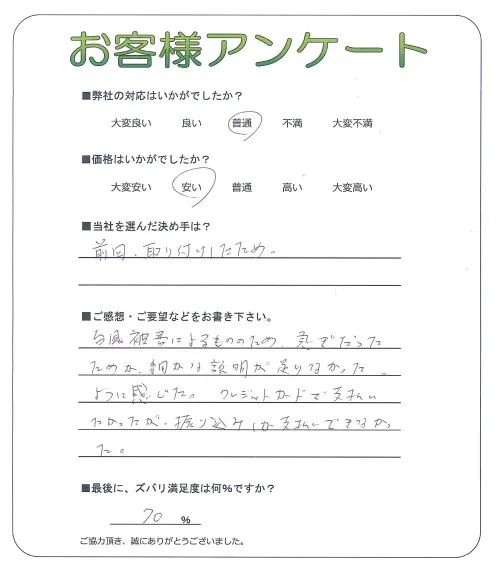 お客様アンケート
■弊社の対応はいかがでしたか?
大変良い 良い 普通 不満 大変不満
■価格はいかがでしたか?
大変安い 安い 普通 高い 大変高い
■当社を選んだ決め手は?
前回、取り付けしたため。
■ご感想・ご要望などをお書き下さい。
台風被害によるもののため、急ぎだった
ためか、細かな説明が足りなかった
ように感じた。 クレジットカードで支払い
たかったが、振り込みしか支払いできなかっ
た。
■最後に、ズバリ満足度は何%ですか?
70 %
ご協力頂き、誠にありがとうございました。